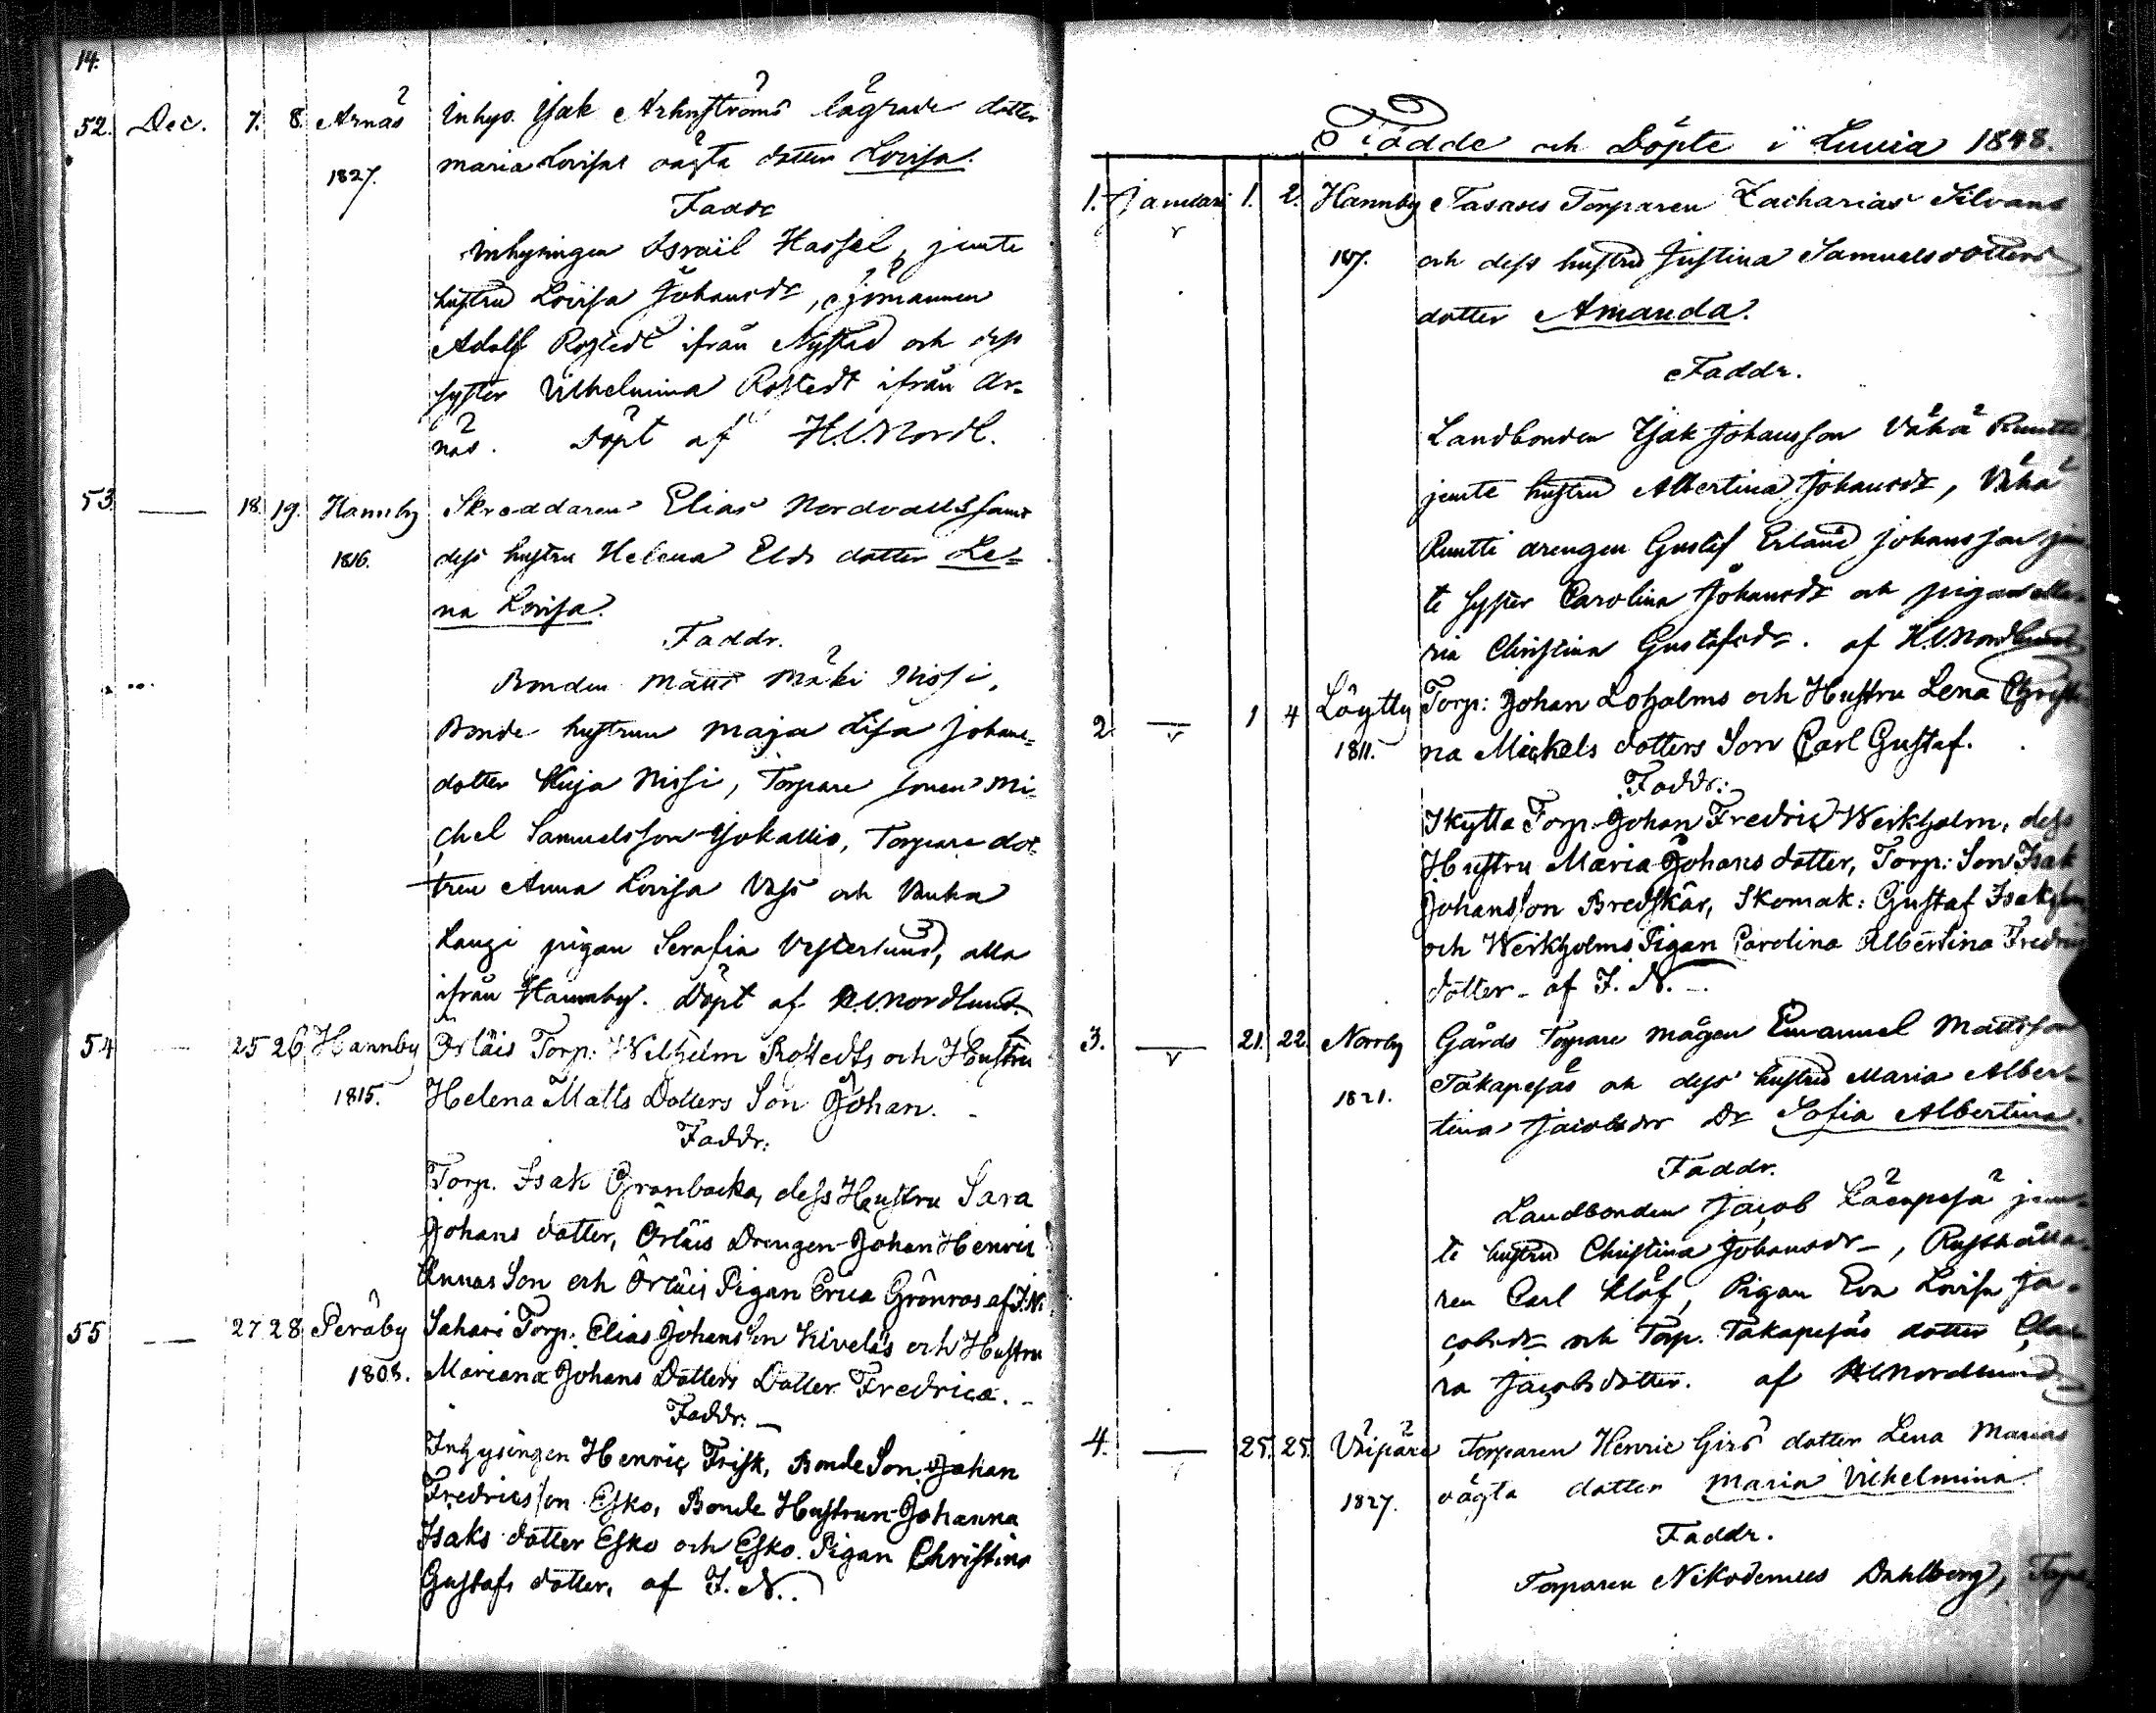 14.
52. Dec. 7. 8. Arnäs Inhys. Isak Arhnströms lägrade dotter
1827. Maria Lovisas oägta dotter Lovisa.
Faddr
Inhysingen Israil Hassel, jemte
hustru Lovisa Johansdr, sjömannen
Adolf Rostedt ifrån Nystad och dess
syster Vilhelmina Rostedt ifrån Ar=
näs. Döpt af H.U. Nordl.
53 — 18 19. Hannby Skreddaren Elias Nordvalls samt
1816. dess hustru Helena Elds dotter Le=
na Lovisa.
Faddr.
Bonden Matts Mäki Nissi,
Bonde hustrun Maja Lisa Johans=
dotter Kuja Nissi, Torpare sonen Mi=
chel Samuelsson Yokallio, Torpare dot=
tren Anna Lovisa Vass och Vanha
Langi pigan Serafia Vesterlund, alla
ifrån Hannby. Döpt af H.U. Nordlund.
54 — 25 26 Hannby Örläis Torp: Wilhelm Rostedts och Hustru
1815. Helena Matts Dotters Son Johan.
Faddr:
Torp. Isak Granbacka, dess Hustru Sara
Johans dotter, Örläis Drengen Johan Henric
Annas Son och Örläis Pigan Erica Grönros af J.N.
55 — 27 28 Peräby Sahari Torp: Elias Johansson Kiveläs och Hustru
1808. Mariana Johans Dotters Dotter Fredrica.
Faddr:
Inhysingen Henric Frisk, Bonde Son Johan
Fredricsson Esko, Bonde Hustrun Johanna
Isaks dotter Esko och Esko Pigan Christina
Gustafs dotter, af J. N.
Födde och Döpte i Luvia 1848.
1. Januari 1. 2. Hannby Tasases Torparen Zacharias Silvans
187. och dess hustru Justina Samuelsdotters
dotter Amanda.
Faddr.
Landbonden Isak Johansson Vähä Runtti
jemte hustru Albertina Johansdr, Vähä
Runtti drengen Gustaf Erland Johansson jem
te syster Carolina Johansdr och pigan Ma=
ria Christina Gustafsdr. af H.U. Nordlund
2 — 1 4 Löytty Torp: Johan Loholms och Hustru Lena Christi
1811. na Mickels dotters Son Carl Gustaf.
Faddr:
Skytta Torp. Johan Fredric Werkholm, dess
Hustru Maria Johans dotter, Torp: Son Isak
Johansson Bredskär, Skomak: Gustaf Isaksson
och Werkholms Pigan Carolina Albertina Fredrics
dotter - af J. N.
3. — 21. 22. Norrby Gårds Torpare mågen Emanuel Mattsson
1821. Takapesäs och dess hustru Maria Alber=
tina Jacobsdrs Dr Sofia Albertina.
Faddr.
Landbonden Jacob Läänpesä jem=
te hustru Christina Johansdr, Rusthålla=
ren Carl Klåf, Pigan Eva Lovisa Ja=
cobsdr och Torp. Takapesäs dotter Cla
ra Jacobsdotter. af H.U. Nordlund
4. — 25. 25. Väipäre Torparen Henric Girs dotter Lena Marias
1827. oägta dotter Maria Vilhelmina
Faddr.
Torparen Nikodemus Dahlberg, Torp